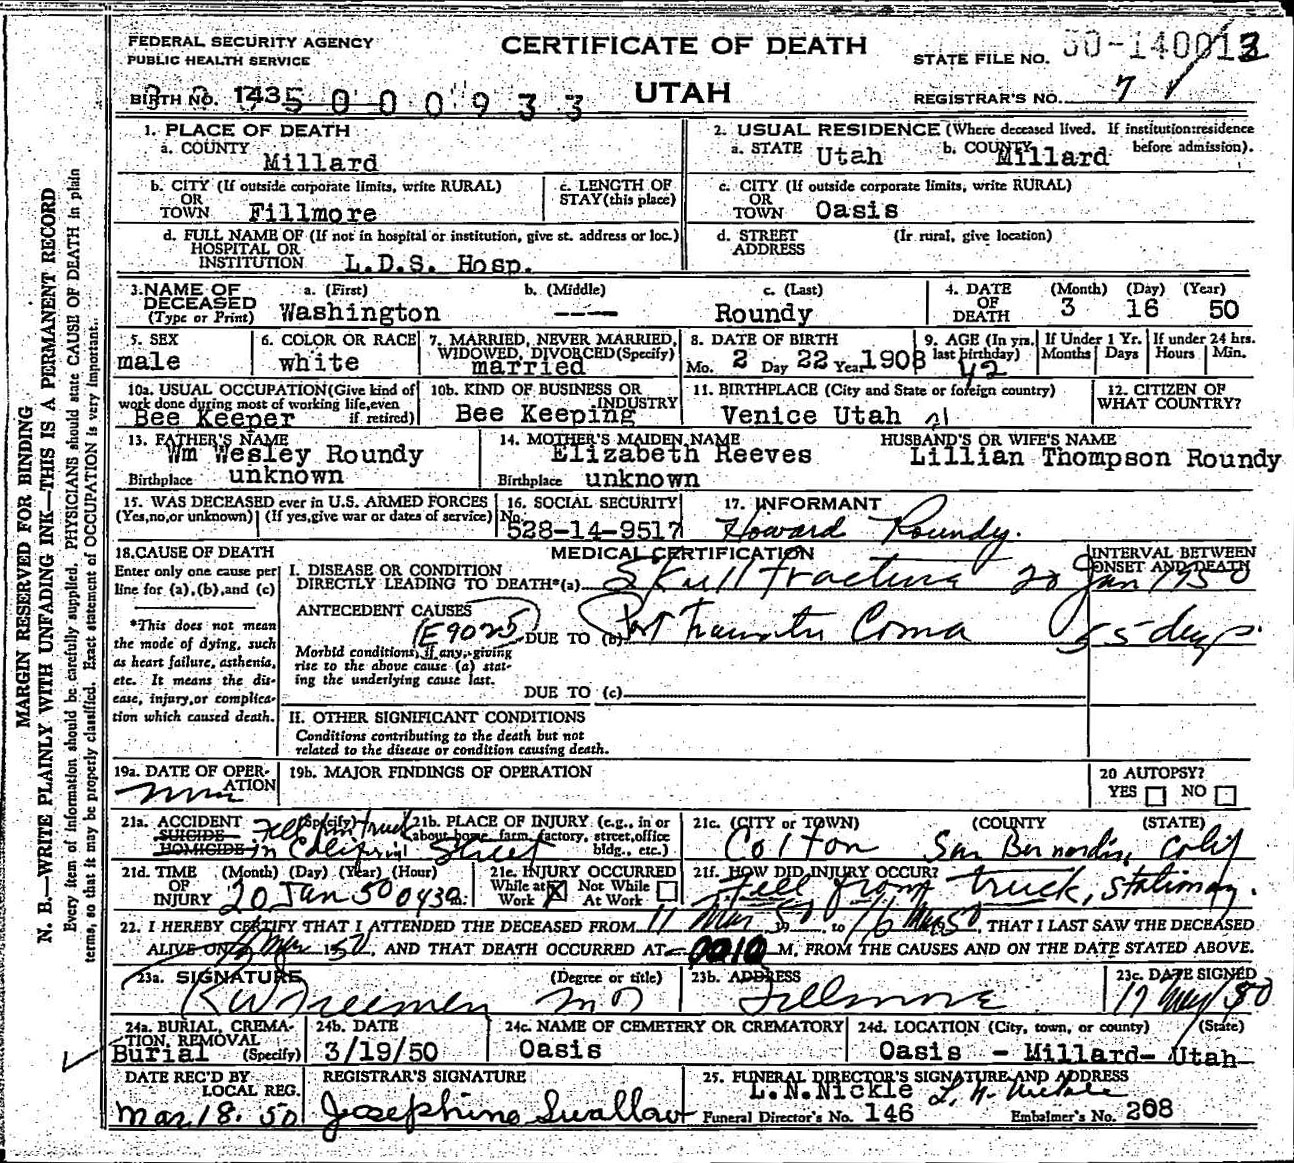 FEDERAL SECURITY AGENCY
PUBLIC HEALTH SERVICE
CERTIFICATE OF DEATH
UTAH
STATE FILE NO. 50-140013
BIRTH NO. 143 5000933
REGISTRAR'S NO. 7
MARGIN RESERVED FOR BINDING
N. B.—WRITE PLAINLY WITH UNFADING INK—THIS IS A PERMANENT RECORD
Every item of information should be carefully supplied. PHYSICIANS should state CAUSE OF DEATH in plain
terms, so that it may be properly classified. Exact statement of OCCUPATION is very important.
1. PLACE OF DEATH
a. COUNTY Millard
b. CITY (If outside corporate limits, write RURAL)
OR
TOWN Fillmore
c. LENGTH OF
STAY (this place)
d. FULL NAME OF (If not in hospital or institution, give st. address or loc.)
HOSPITAL OR
INSTITUTION L.D.S. Hosp.
2. USUAL RESIDENCE (Where deceased lived. If institution: residence
before admission).
a. STATE Utah b. COUNTY Millard
c. CITY (If outside corporate limits, write RURAL)
OR
TOWN Oasis
d. STREET (If rural, give location)
ADDRESS
3. NAME OF DECEASED
(Type or Print)
a. (First) Washington
b. (Middle) ----
c. (Last) Roundy
4. DATE OF DEATH
(Month) (Day) (Year)
3 16 50
5. SEX
male
6. COLOR OR RACE
white
7. MARRIED, NEVER MARRIED,
WIDOWED, DIVORCED (Specify)
married
8. DATE OF BIRTH
Mo. 2 Day 22 Year 1908
9. AGE (In yrs. last birthday)
42
If Under 1 Yr.
Months Days
If under 24 hrs.
Hours Min.
10a. USUAL OCCUPATION (Give kind of
work done during most of working life, even
if retired)
Bee Keeper
10b. KIND OF BUSINESS OR
INDUSTRY
Bee Keeping
11. BIRTHPLACE (City and State or foreign country)
Venice Utah 21
12. CITIZEN OF
WHAT COUNTRY?
13. FATHER'S NAME
Wm Wesley Roundy
Birthplace unknown
14. MOTHER'S MAIDEN NAME
Elizabeth Reeves
Birthplace unknown
HUSBAND'S OR WIFE'S NAME
Lillian Thompson Roundy
15. WAS DECEASED ever in U.S. ARMED FORCES
(Yes, no, or unknown) (If yes, give war or dates of service)
16. SOCIAL SECURITY
No. 528-14-9517
17. INFORMANT
Howard Roundy.
18. CAUSE OF DEATH
Enter only one cause per
line for (a), (b), and (c)
*This does not mean
the mode of dying, such
as heart failure, asthenia,
etc. It means the dis-
ease, injury, or complica-
tion which caused death.
MEDICAL CERTIFICATION
INTERVAL BETWEEN
ONSET AND DEATH
I. DISEASE OR CONDITION
DIRECTLY LEADING TO DEATH* (a) Skull fracture 20 Jan 1950
ANTECEDENT CAUSES
E9025
DUE TO (b) Post Traumatic Coma 55 days
Morbid conditions, if any, giving
rise to the above cause (a) stat-
ing the underlying cause last.
DUE TO (c)
II. OTHER SIGNIFICANT CONDITIONS
Conditions contributing to the death but not
related to the disease or condition causing death.
19a. DATE OF OPER-
ATION
19b. MAJOR FINDINGS OF OPERATION
20 AUTOPSY?
YES NO
21a. ACCIDENT (Specify)
SUICIDE
HOMICIDE
Fell from truck
in California
21b. PLACE OF INJURY (e.g., in or
about home, farm, factory, street, office
bldg., etc.)
Street
21c. (CITY or TOWN) (COUNTY) (STATE)
Colton San Bernardino, Calif
21d. TIME (Month) (Day) (Year) (Hour)
OF
INJURY 20 Jan 50 0430
21e. INJURY OCCURRED
While at Work X Not While At Work
21f. HOW DID INJURY OCCUR?
Fell from truck, stationary.
22. I HEREBY CERTIFY THAT I ATTENDED THE DECEASED FROM 11 Mar 50 to 16 Mar 50, THAT I LAST SAW THE DECEASED
ALIVE ON Mar 1950, AND THAT DEATH OCCURRED AT 0010 M, FROM THE CAUSES AND ON THE DATE STATED ABOVE.
23a. SIGNATURE (Degree or title)
R W Freeman MD
23b. ADDRESS
Fillmore
23c. DATE SIGNED
17 Mar 50
24a. BURIAL, CREMA-
TION, REMOVAL
(Specify)
Burial
24b. DATE
3/19/50
24c. NAME OF CEMETERY OR CREMATORY
Oasis
24d. LOCATION (City, town, or county) (State)
Oasis - Millard- Utah
DATE REC'D BY
LOCAL REG.
Mar 18. 50
REGISTRAR'S SIGNATURE
Josephine Swallow
25. FUNERAL DIRECTOR'S SIGNATURE AND ADDRESS
L.N.Nickle L. N. Nickle
Funeral Director's No. 146 Embalmer's No. 268